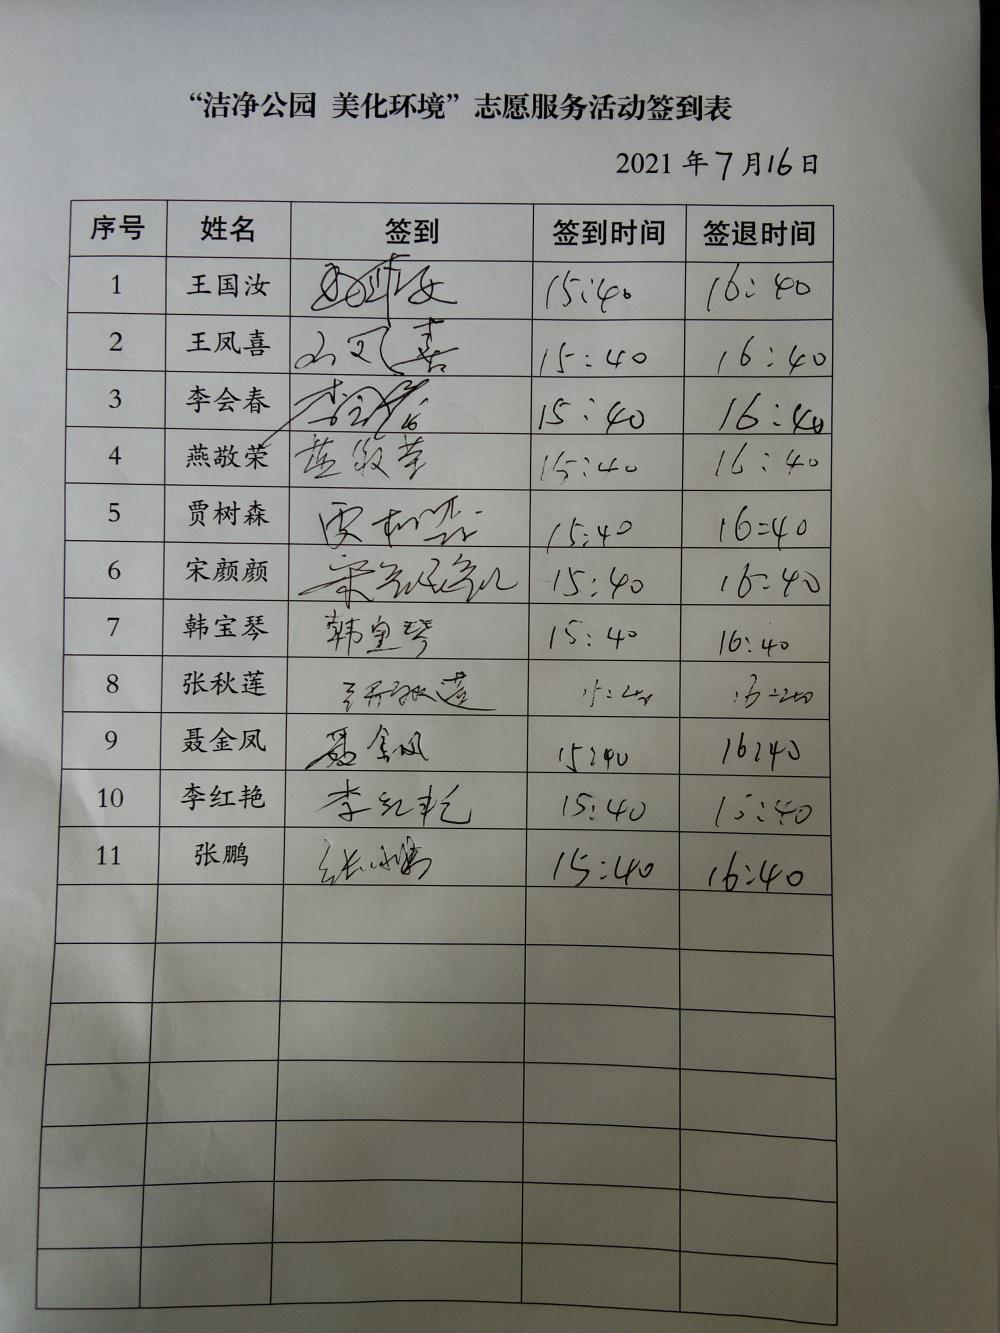 “洁净公园 美化环境”志愿服务活动签到表
2021 年 7 月 16 日
序号 姓名 签到 签到时间 签退时间
1 王国汝 15:40 16:40
2 王凤喜 王凤喜 15:40 16:40
3 李会春 李会春 15:40 16:40
4 燕敬荣 燕敬荣 15:40 16:40
5 贾树森 贾树森 15:40 16:40
6 宋颜颜 宋颜颜 15:40 16:40
7 韩宝琴 韩宝琴 15:40 16:40
8 张秋莲 张秋莲 15:40 16:40
9 聂金凤 聂金凤 15:40 16:40
10 李红艳 李红艳 15:40 15:40
11 张鹏 张鹏 15:40 16:40